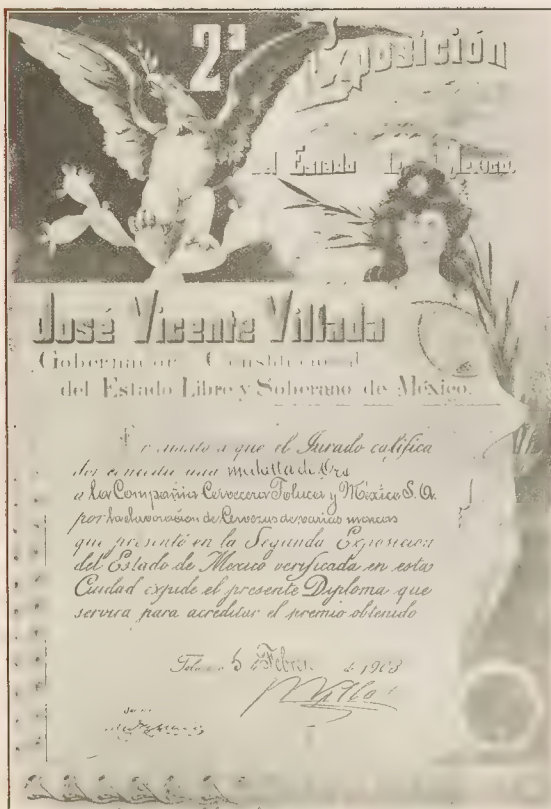 2ª Exposición
del Estado de México.
José Vicente Villada
Gobernador Constitucional
del Estado Libre y Soberano de México.
cuanto a que el Jurado califica
dor concedió una medalla de Oro
a la Compañia Cervecera Toluca y México S. A.
por la elaboracion de Cervezas de varias marcas
que presentó en la Segunda Exposicion
del Estado de Mexico verificada en esta
Ciudad expide el presente Diploma que
servira para acreditar el premio obtenido
Toluca 5 Febro. de 1903